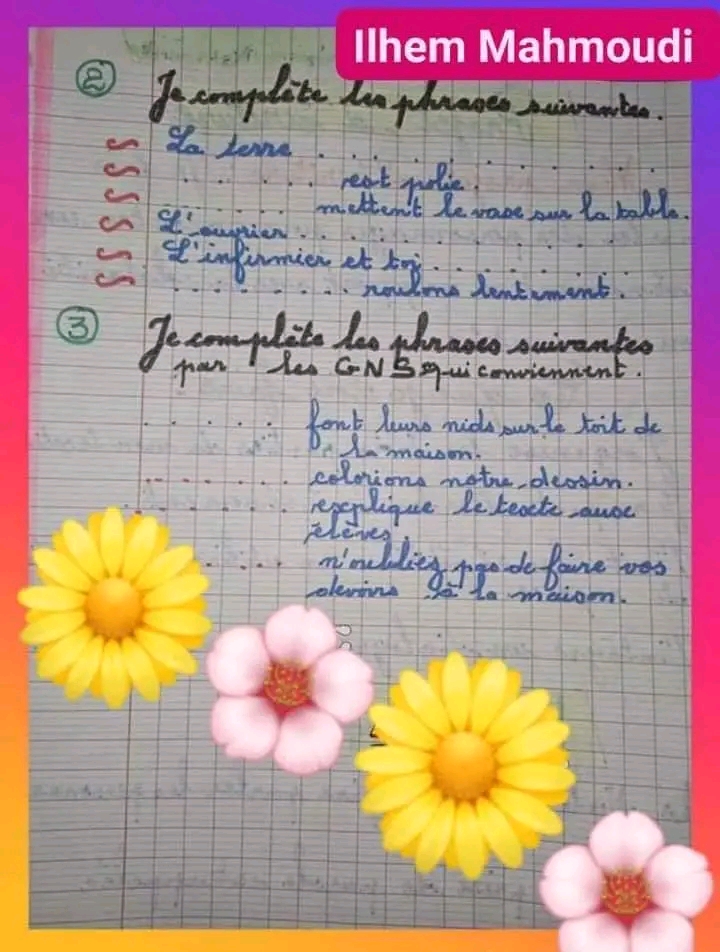 Ilhem Mahmoudi
② Je complète les phrases suivantes.
La terre . . . . . . . . . .
. . . . . . . est polie.
. . . . . . . mettent le vase sur la table.
L'ouvrier . . . . . . . . . .
L'infirmier et toi . . . . . . . .
. . . . . . . . roulons lentement.
③ Je complète les phrases suivantes
par les GNS qui conviennent.
. . . . . . font leurs nids sur le toit de
la maison.
. . . . . . . . colorions notre dessin.
. . . . . . . . explique le texte aux
élèves.
. . . . . n'oubliez pas de faire vos
devoirs à la maison.